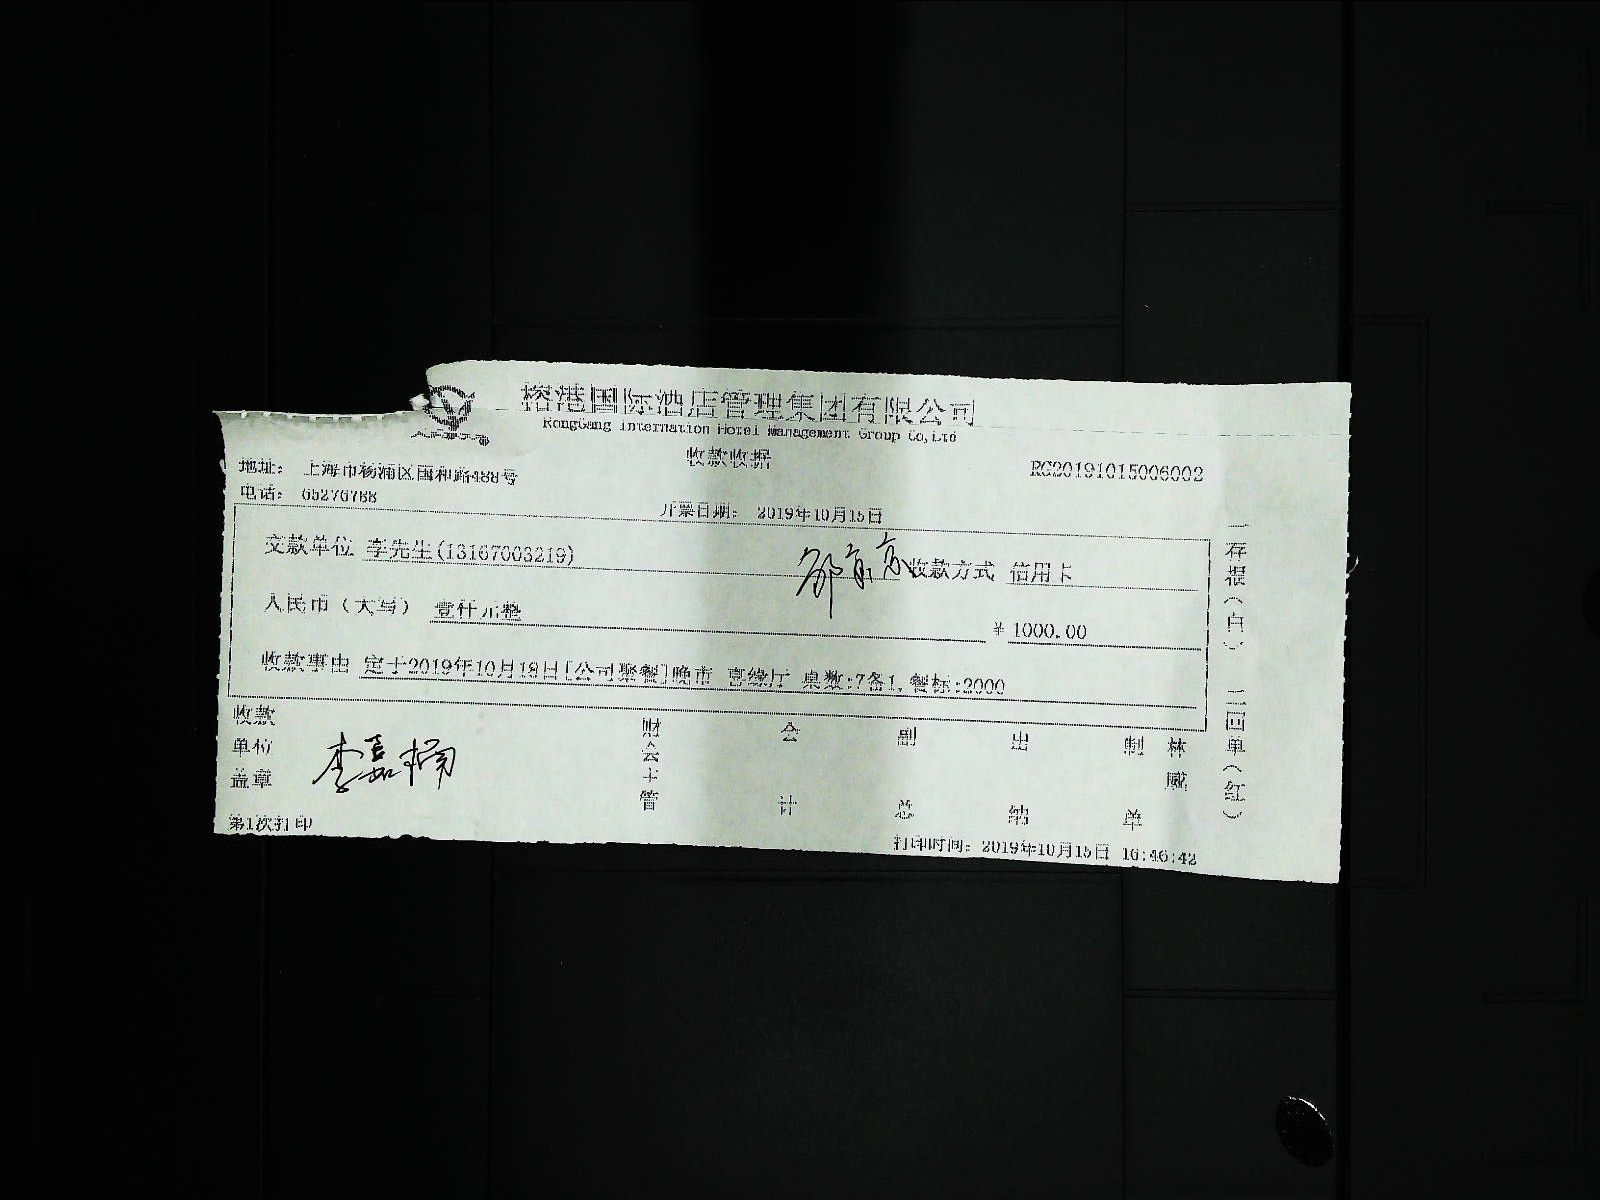 榕港国际酒店管理集团有限公司
RongGang Internation Hotel Management Group Co,Ltd
收款收据
地址： 上海市杨浦区国和路488号
RG20191015006002
电话： 65276788
开票日期： 2019年10月15日
交款单位 李先生(13167003219) 收款方式 信用卡
人民币（大写） 壹仟元整 ¥ 1000.00
收款事由 定于2019年10月18日[公司聚餐]晚市 喜缘厅 桌数:7备1,餐标:2000
收款单位盖章 李嘉楠 财会主管 会计 副总 出纳 制单 林威
一存根（白） 二回单（红）
第1次打印
打印时间： 2019年10月15日 16:46:42